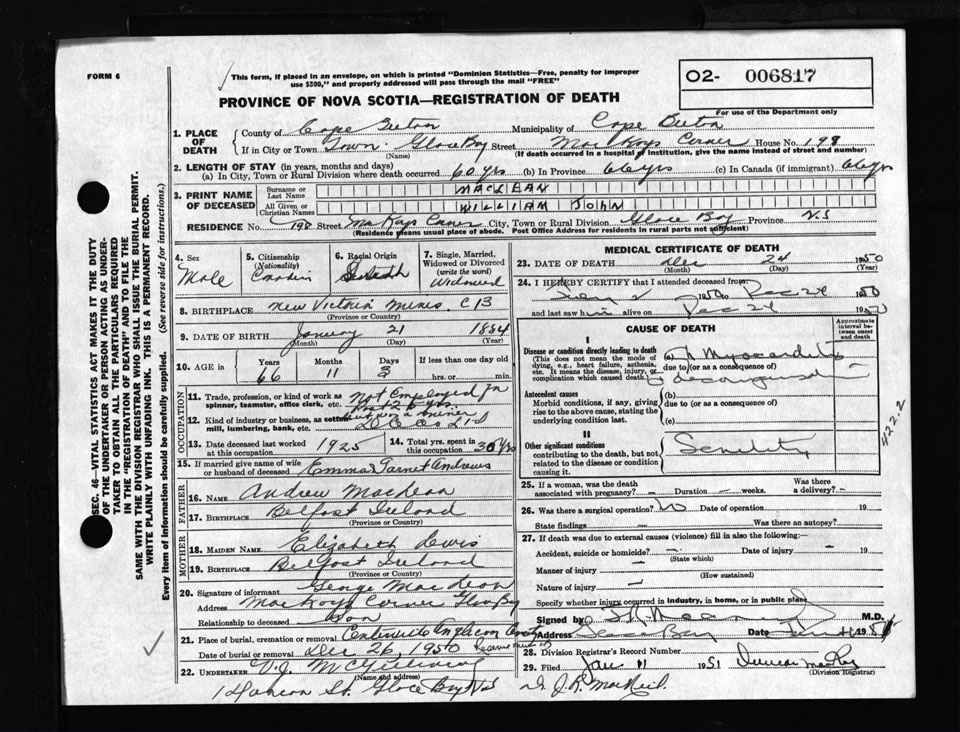 FORM 6
This form, if placed in an envelope, on which is printed "Dominion Statistics—Free, penalty for improper
use $300," and properly addressed will pass through the mail "FREE"
O2- 006817
For use of the Department only
PROVINCE OF NOVA SCOTIA—REGISTRATION OF DEATH
1. PLACE OF DEATH
County of Cape Breton Municipality of Cape Breton
If in City or Town Town: Glace Bay Street MacKays Corner House No. 198
(Name) (If death occurred in a hospital or institution, give the name instead of street and number)
2. LENGTH OF STAY (in years, months and days)
(a) In City, Town or Rural Division where death occurred 60 yrs (b) In Province 66 yrs (c) In Canada (if immigrant) 66 yrs
3. PRINT NAME OF DECEASED
Surname or Last Name MACLEAN
All Given or Christian Names WILLIAM JOHN
RESIDENCE No. 198 Street MacKays Corner City, Town or Rural Division Glace Bay Province N.S
(Residence means usual place of abode. Post Office Address for residents in rural parts not sufficient)
4. Sex Male
5. Citizenship (Nationality) Canadian
6. Racial Origin
7. Single, Married, Widowed or Divorced (write the word) Widowed
8. BIRTHPLACE New Victoria Mines. C B
(Province or Country)
9. DATE OF BIRTH January 21 1884
(Month) (Day) (Year)
10. AGE in Years 66 Months 11 Days 3 If less than one day old
hrs. or min.
OCCUPATION
11. Trade, profession, or kind of work as
spinner, teamster, office clerk, etc. Not Employed for
past 25 yrs.
but was a miner
12. Kind of industry or business, as cotton
mill, lumbering, bank, etc.
13. Date deceased last worked
at this occupation 1925
14. Total yrs. spent in
this occupation 30 yrs
15. If married give name of wife
or husband of deceased Emma Garnet Andrews
FATHER
16. NAME Andrew MacLean
17. BIRTHPLACE Belfast Ireland
(Province or Country)
MOTHER
18. MAIDEN NAME Elizabeth Lewis
19. BIRTHPLACE Belfast Ireland
(Province or Country)
20. Signature of informant George MacLean
Address MacKays Corner Glace Bay
Relationship to deceased Son
21. Place of burial, cremation or removal Anglican
Date of burial or removal Dec 26, 1950
22. UNDERTAKER V.J.
(Name and address)
St. Glace Bay NS
MEDICAL CERTIFICATE OF DEATH
23. DATE OF DEATH Dec 24 1950
(Month) (Day) (Year)
24. I HEREBY CERTIFY that I attended deceased from
1950 to Dec 24 1950
and last saw him alive on Dec 24 1950
CAUSE OF DEATH
Approximate interval between onset and death
I
Disease or condition directly leading to death
(This does not mean the mode of dying, e.g., heart failure, asthenia, etc. It means the disease, injury, or complication which caused death.)
(a) Myocarditis
due to (or as a consequence of)
decompensation
Antecedent causes
Morbid conditions, if any, giving rise to the above cause, stating the underlying condition last.
(b)
due to (or as a consequence of)
(c)
II
Other significant conditions
contributing to the death, but not related to the disease or condition causing it.
Senility
422.2
25. If a woman, was the death
associated with pregnancy? – Duration – weeks. Was there a delivery? –
26. Was there a surgical operation? No Date of operation 19
State findings — Was there an autopsy?
27. If death was due to external causes (violence) fill in also the following:—
Accident, suicide or homicide? — Date of injury – 19
(State which)
Manner of injury —
(How sustained)
Nature of injury —
Specify whether injury occurred in industry, in home, or in public place
Signed by M.D.
Address Glace Bay Date 1951
28. Division Registrar's Record Number
29. Filed Jan 11 1951 Duncan MacKay
(Division Registrar)
J.R. MacNeil
SEC. 46—VITAL STATISTICS ACT MAKES IT THE DUTY
OF THE UNDERTAKER OR PERSON ACTING AS UNDERTAKER
TO OBTAIN ALL THE PARTICULARS REQUIRED
IN THE "REGISTRATION OF DEATH" AND TO FILE THE
SAME WITH THE DIVISION REGISTRAR WHO SHALL ISSUE THE BURIAL PERMIT.
WRITE PLAINLY WITH UNFADING INK. THIS IS A PERMANENT RECORD.
Every item of information should be carefully supplied. (See reverse side for instructions.)